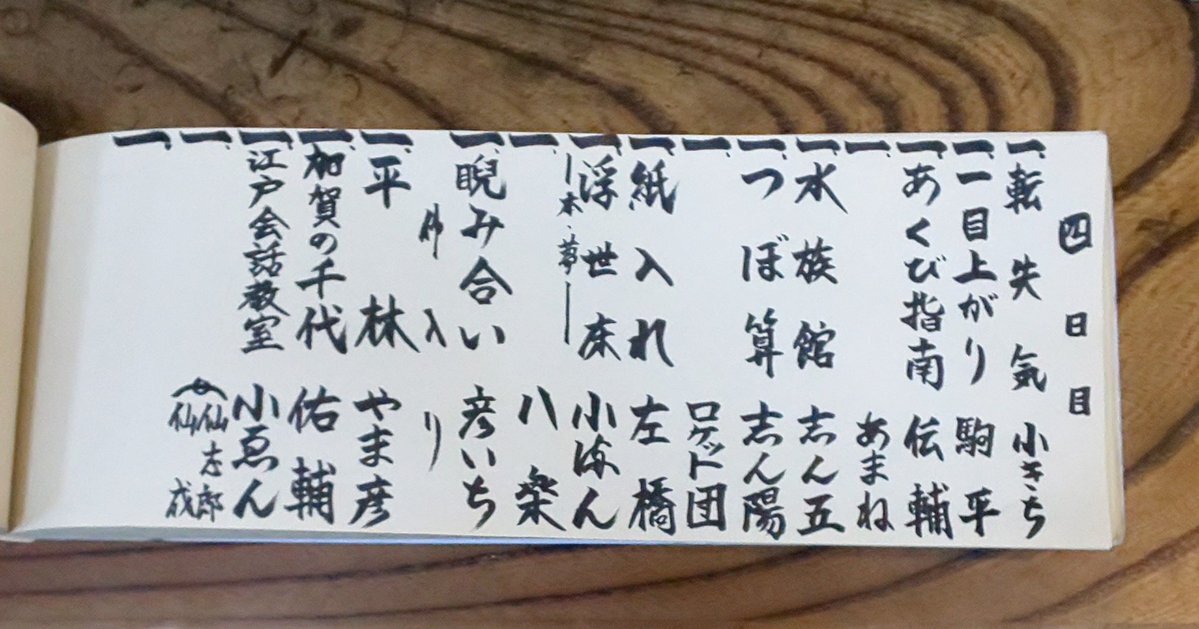 四日目
一、転失気 小きち
一、一目上がり 駒平
一、あくび指南 伝輔
一、 あまね
一、水族館 志ん五
一、つぼ算 志ん陽
一、 ロケット団
一、紙入れ 左橋
一、浮世床 小海ん
―本・夢―
一、 八楽
一、睨み合い 彦いち
仲入り
一、平林 やま彦
一、加賀の千代 佑輔
一、江戸会話教室 小ゑん
一、 仙志郎
一、 仙成